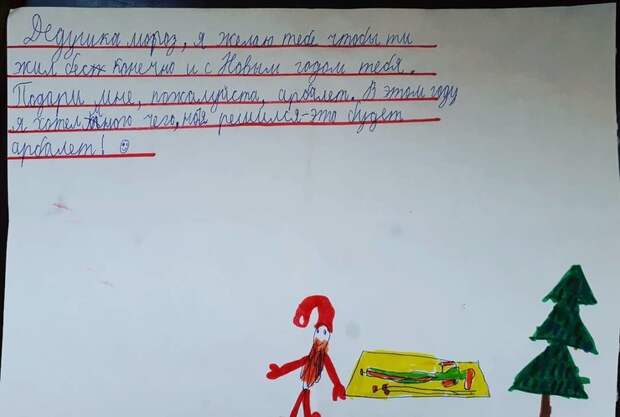 Дедушка мороз, я желаю тебе чтобы ти
жил беск конечно и с Новым годом тебя.
Подари мне, пожалуйста, арбалет. В этом году
я хотел много чего, но я решился-это будет
арбалет!